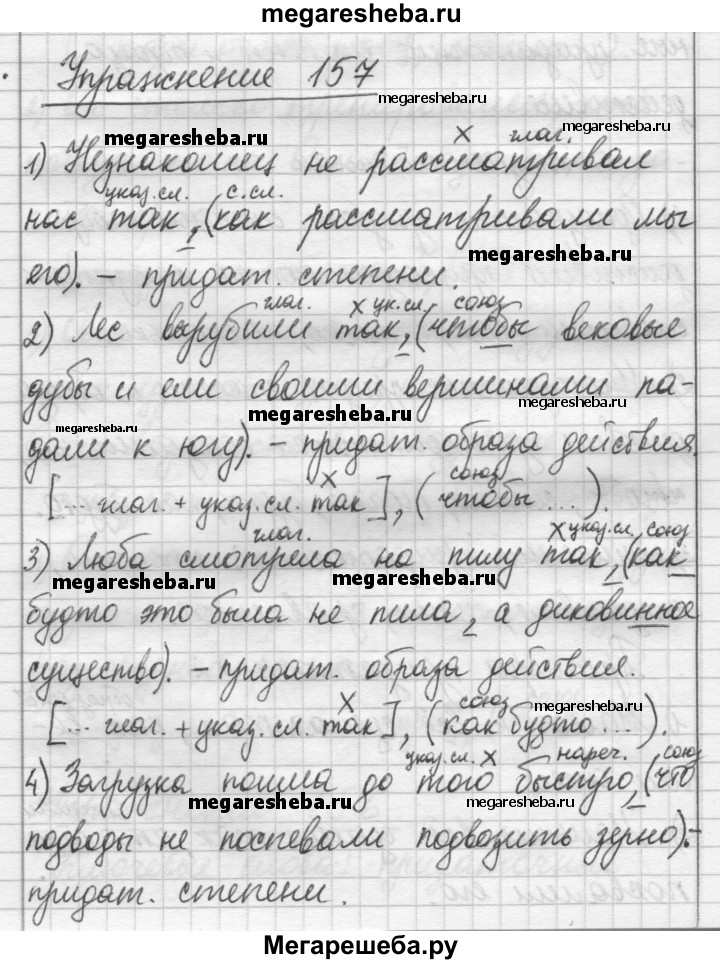 megaresheba.ru
Упражнение 157
megaresheba.ru
megaresheba.ru
х глаг.
megaresheba.ru
1) Незнакомец не рассматривал
указ.сл. с.сл.
нас так, (как рассматривали мы
megaresheba.ru
его). – придат. степени.
глаг. х ук.сл. союз
2) Лес вырубили так, (чтобы вековые
дубы и ели своими вершинами па-
megaresheba.ru
megaresheba.ru
megaresheba.ru
дали к югу). – придат. образа действия.
х союз
[... глаг. + указ.сл. так], (чтобы ...).
глаг. х указ.сл. союз
3) Люба смотрела на пилу так, (как
megaresheba.ru megaresheba.ru
будто это была не пила, а диковинное
существо). – придат. образа действия.
х союз megaresheba.ru
[... глаг. + указ.сл. так], (как будто ...).
указ.сл. х нареч. союз
4) Загрузка пошла до того быстро, (что
megaresheba.ru megaresheba.ru
подводы не поспевали подвозить зерно). –
придат. степени.
Мегарешеба.ру